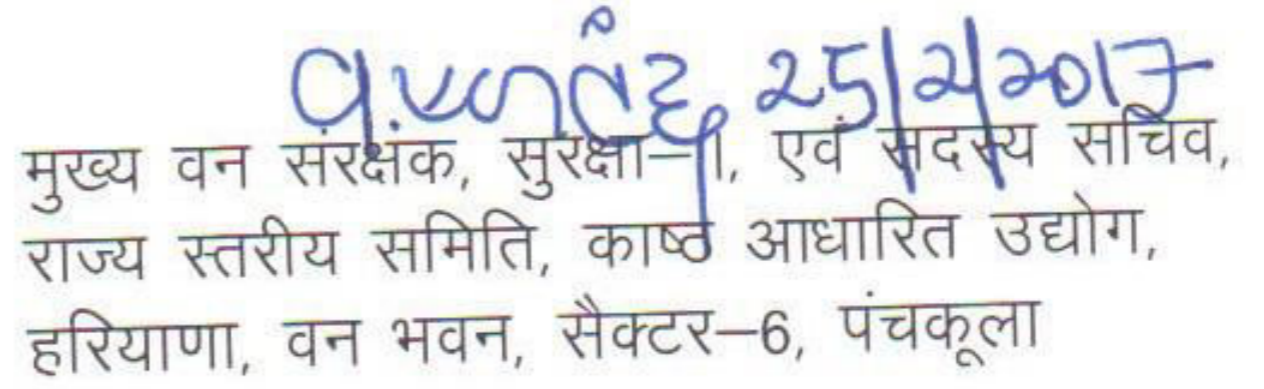 25/2/2017
मुख्य वन संरक्षक, सुरक्षा–1, एवं सदस्य सचिव,
राज्य स्तरीय समिति, काष्ठ आधारित उद्योग,
हरियाणा, वन भवन, सैक्टर–6, पंचकूला